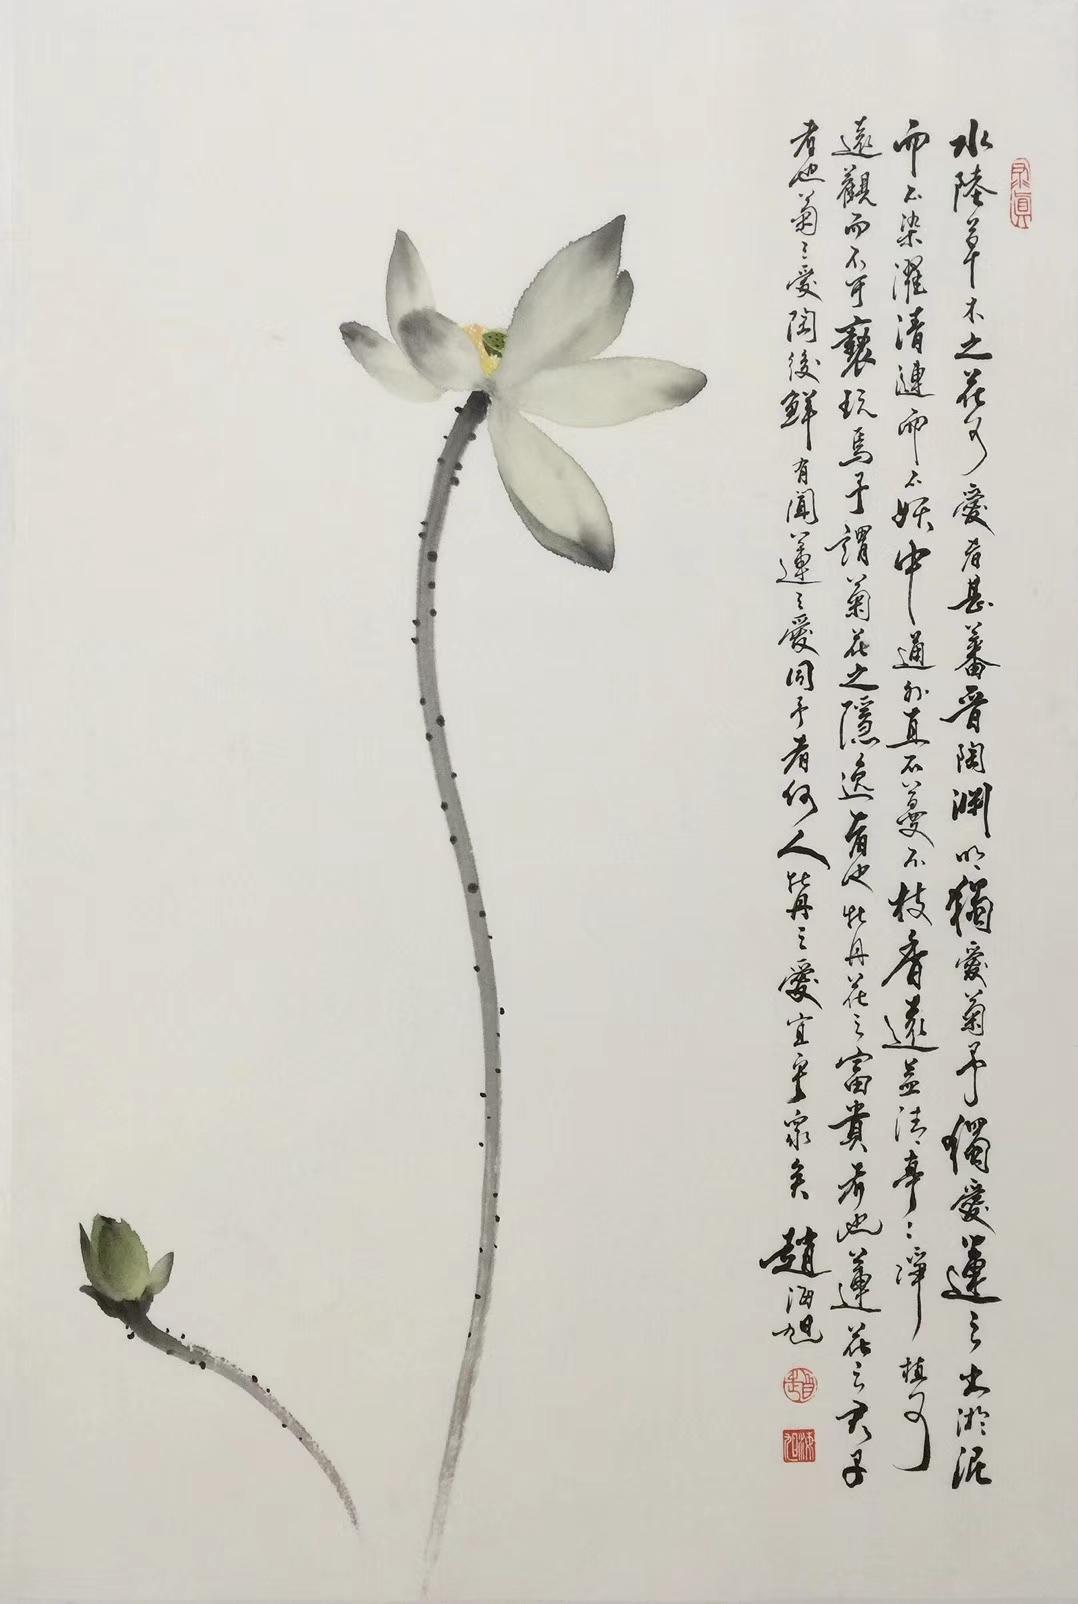 水陸草木之花可愛者甚蕃晉陶淵明獨愛菊予獨愛蓮之出淤泥
而不染濯清漣而不妖中通外直不蔓不枝香遠益清亭〻淨植可
遠觀而不可褻玩焉予謂菊花之隱逸者也牡丹花之富貴者也蓮花之君子
者也菊之愛陶後鮮有聞蓮之愛同予者何人牡丹之愛宜乎眾矣 趙海旭
海旭